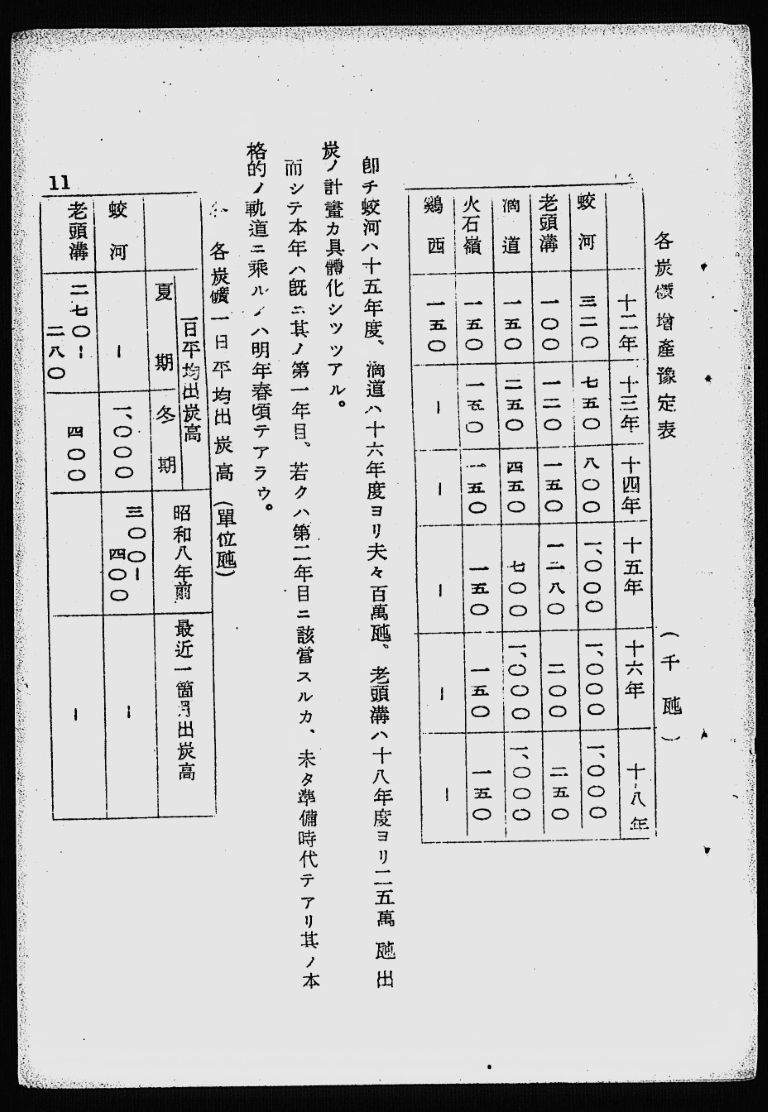 各炭礦增產豫定表 (千瓲)
十二年 十三年 十四年 十五年 十六年 十八年
蛟河 三二〇 七五〇 八〇〇 一、〇〇〇 一、〇〇〇 一、〇〇〇
老頭溝 一〇〇 一二〇 一五〇 一八〇 二〇〇 二五〇
滴道 一五〇 二五〇 四五〇 七〇〇 一、〇〇〇 一、〇〇〇
火石嶺 一五〇 一五〇 一五〇 一五〇 一五〇 一五〇
鷄西 一五〇 ー ー ー ー ー
卽チ蛟河ハ十五年度、滴道ハ十六年度ヨリ夫々百萬瓲、老頭溝ハ十八年度ヨリ二五萬瓲出
炭ノ計畫カ具體化シツツアル。
而シテ本年ハ旣ニ其ノ第一年目、若クハ第二年目ニ該當スルカ、未タ準備時代テアリ其ノ本
格的ノ軌道ニ乘ルノハ明年春頃テアラウ。
各炭礦一日平均出炭高(單位瓲)
一日平均出炭高 昭和八年前 最近一箇月出炭高
夏期 冬期
蛟河 ー 一、〇〇〇 三〇〇ー四〇〇 ー
老頭溝 二七〇ー二八〇 四〇〇 ー
11